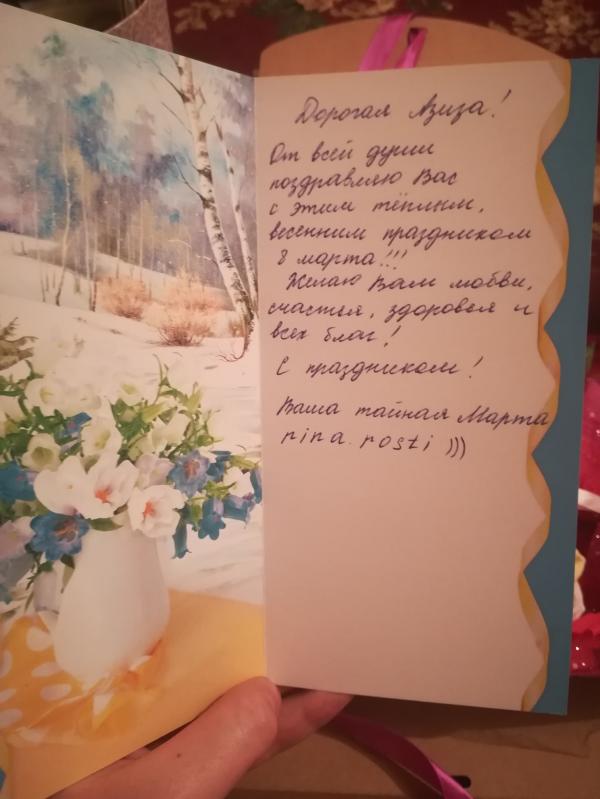 Дорогая Азиза!
От всей души
поздравляю Вас
с этим тёплым,
весенним праздником
8 марта!!!
Желаю Вам любви,
счастья, здоровья и
всех благ!
С праздником!
Ваша тайная Марта
nina.rosti )))